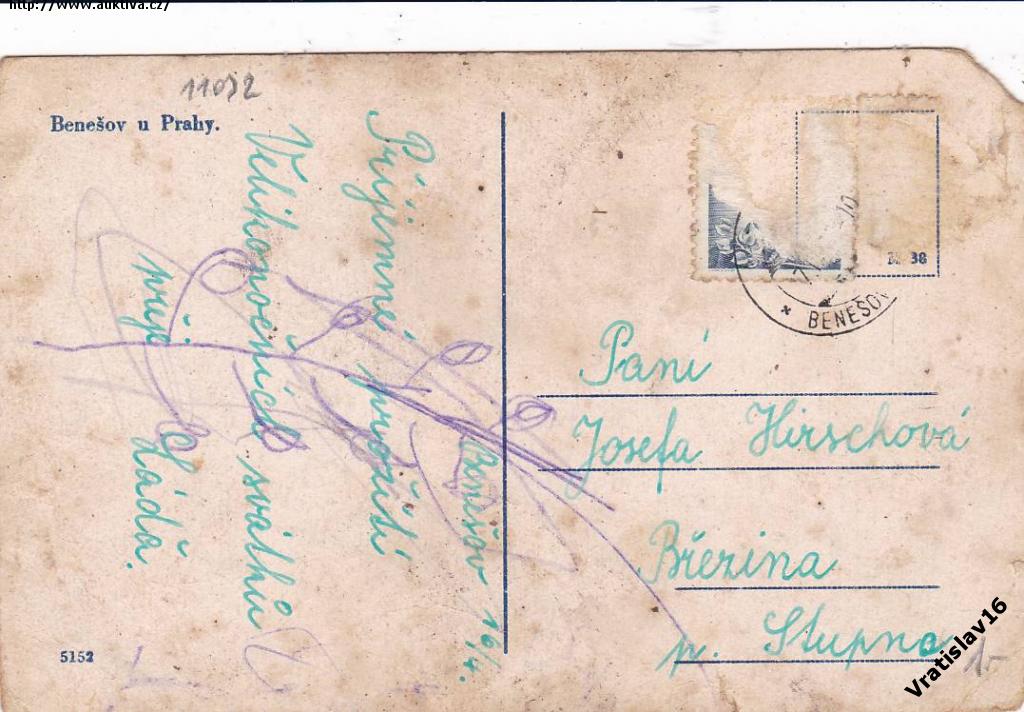 http://www.auktiva.cz/
11092
Benešov u Prahy.
Benešov 16/4.
Příjemné prožití
Velikonočních svátků
přeje
Láďa.
38
BENEŠOV
Paní
Josefa Hirschová
Březina
p. Stupna
1-
5152
Vratislav16